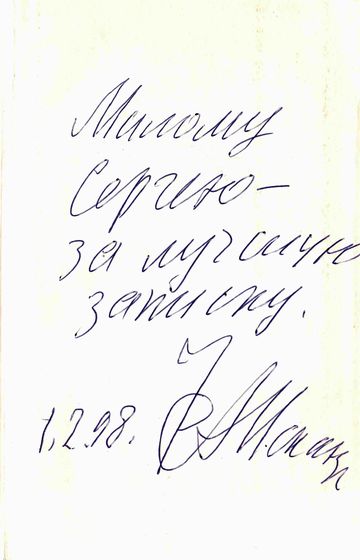 Милому
Сергею –
за лучшую
записку.
1.2.98.